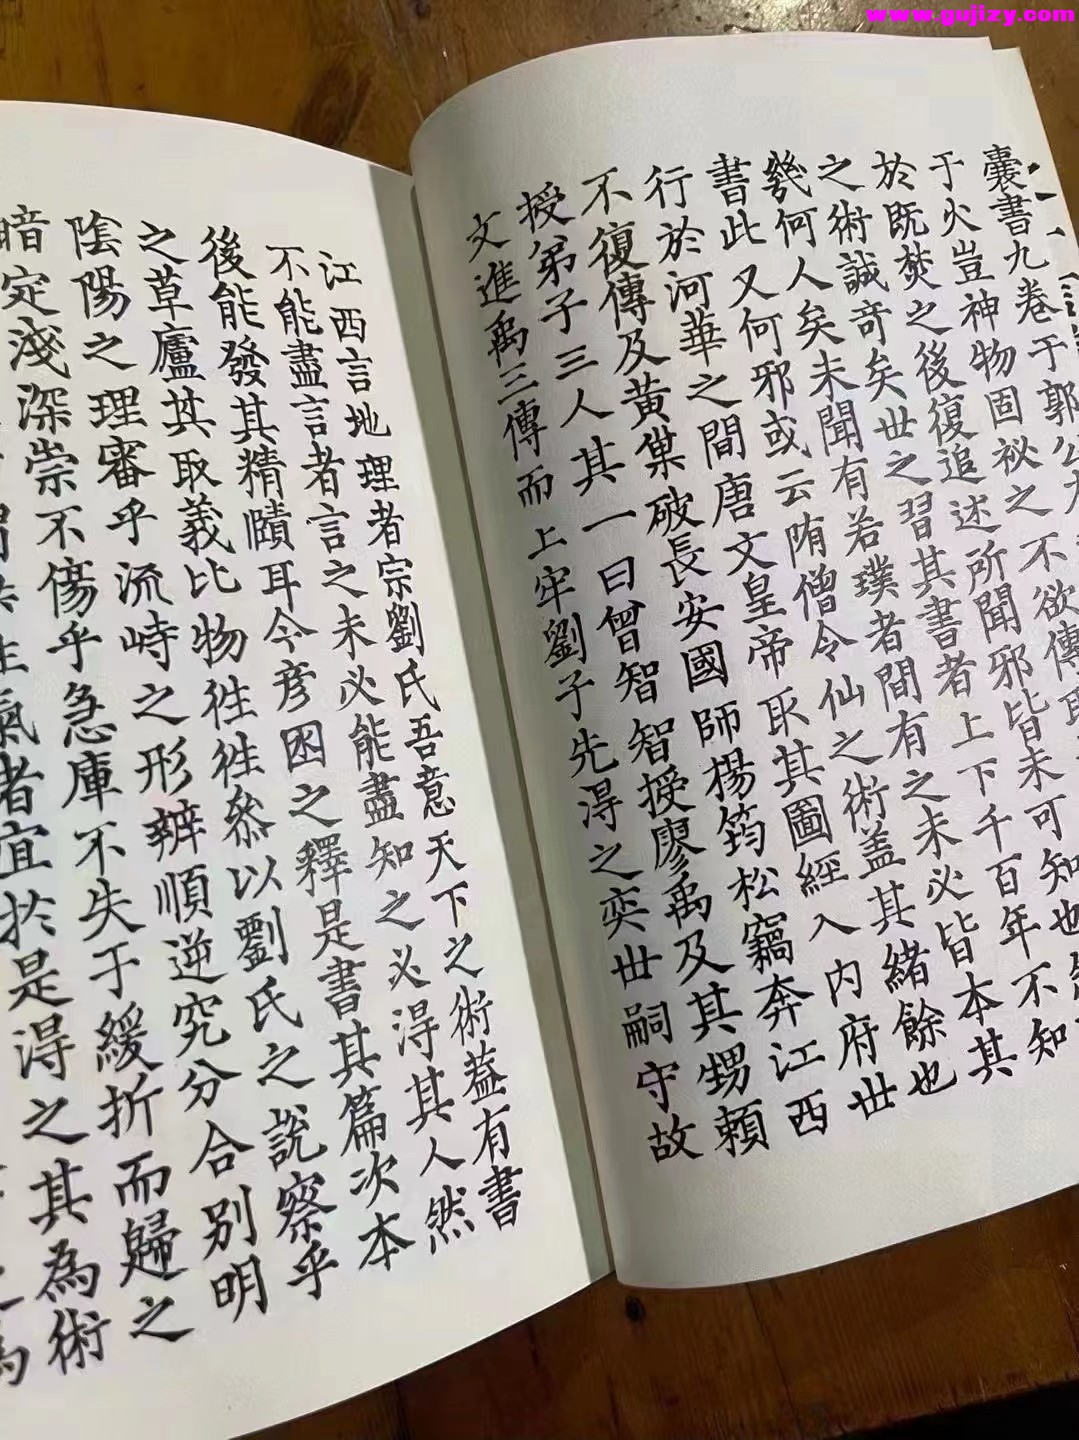 www.gujizy.com
囊書九卷于郭公
于火豈神物固祕之不欲傳
於既焚之後復追述所聞邪皆未可知也
之術誠奇矣世之習其書者上下千百年不知
幾何人矣未聞有若璞者間有之未必皆本其
書此又何邪或云隋僧令仙之術盖其緒餘也
行於河華之間唐文皇帝取其圖經入內府世
不復傳及黃巢破長安國師楊筠松竊奔江西
授弟子三人其一曰曾智智授廖禹及其甥賴
文進禹三傳而上牢劉子先得之奕世嗣守故
江西言地理者宗劉氏吾意天下之術葢有書
不能盡言者言之未必能盡知之必得其人然
後能發其精賾耳今彥困之釋是書其篇次本
之草廬其取義比物徃徃叅以劉氏之說察乎
隂陽之理審乎流峙之形辨順逆究分合別明
暗定淺深崇不傷乎急庳不失于緩折而歸之
生氣者宜於是得之其為術